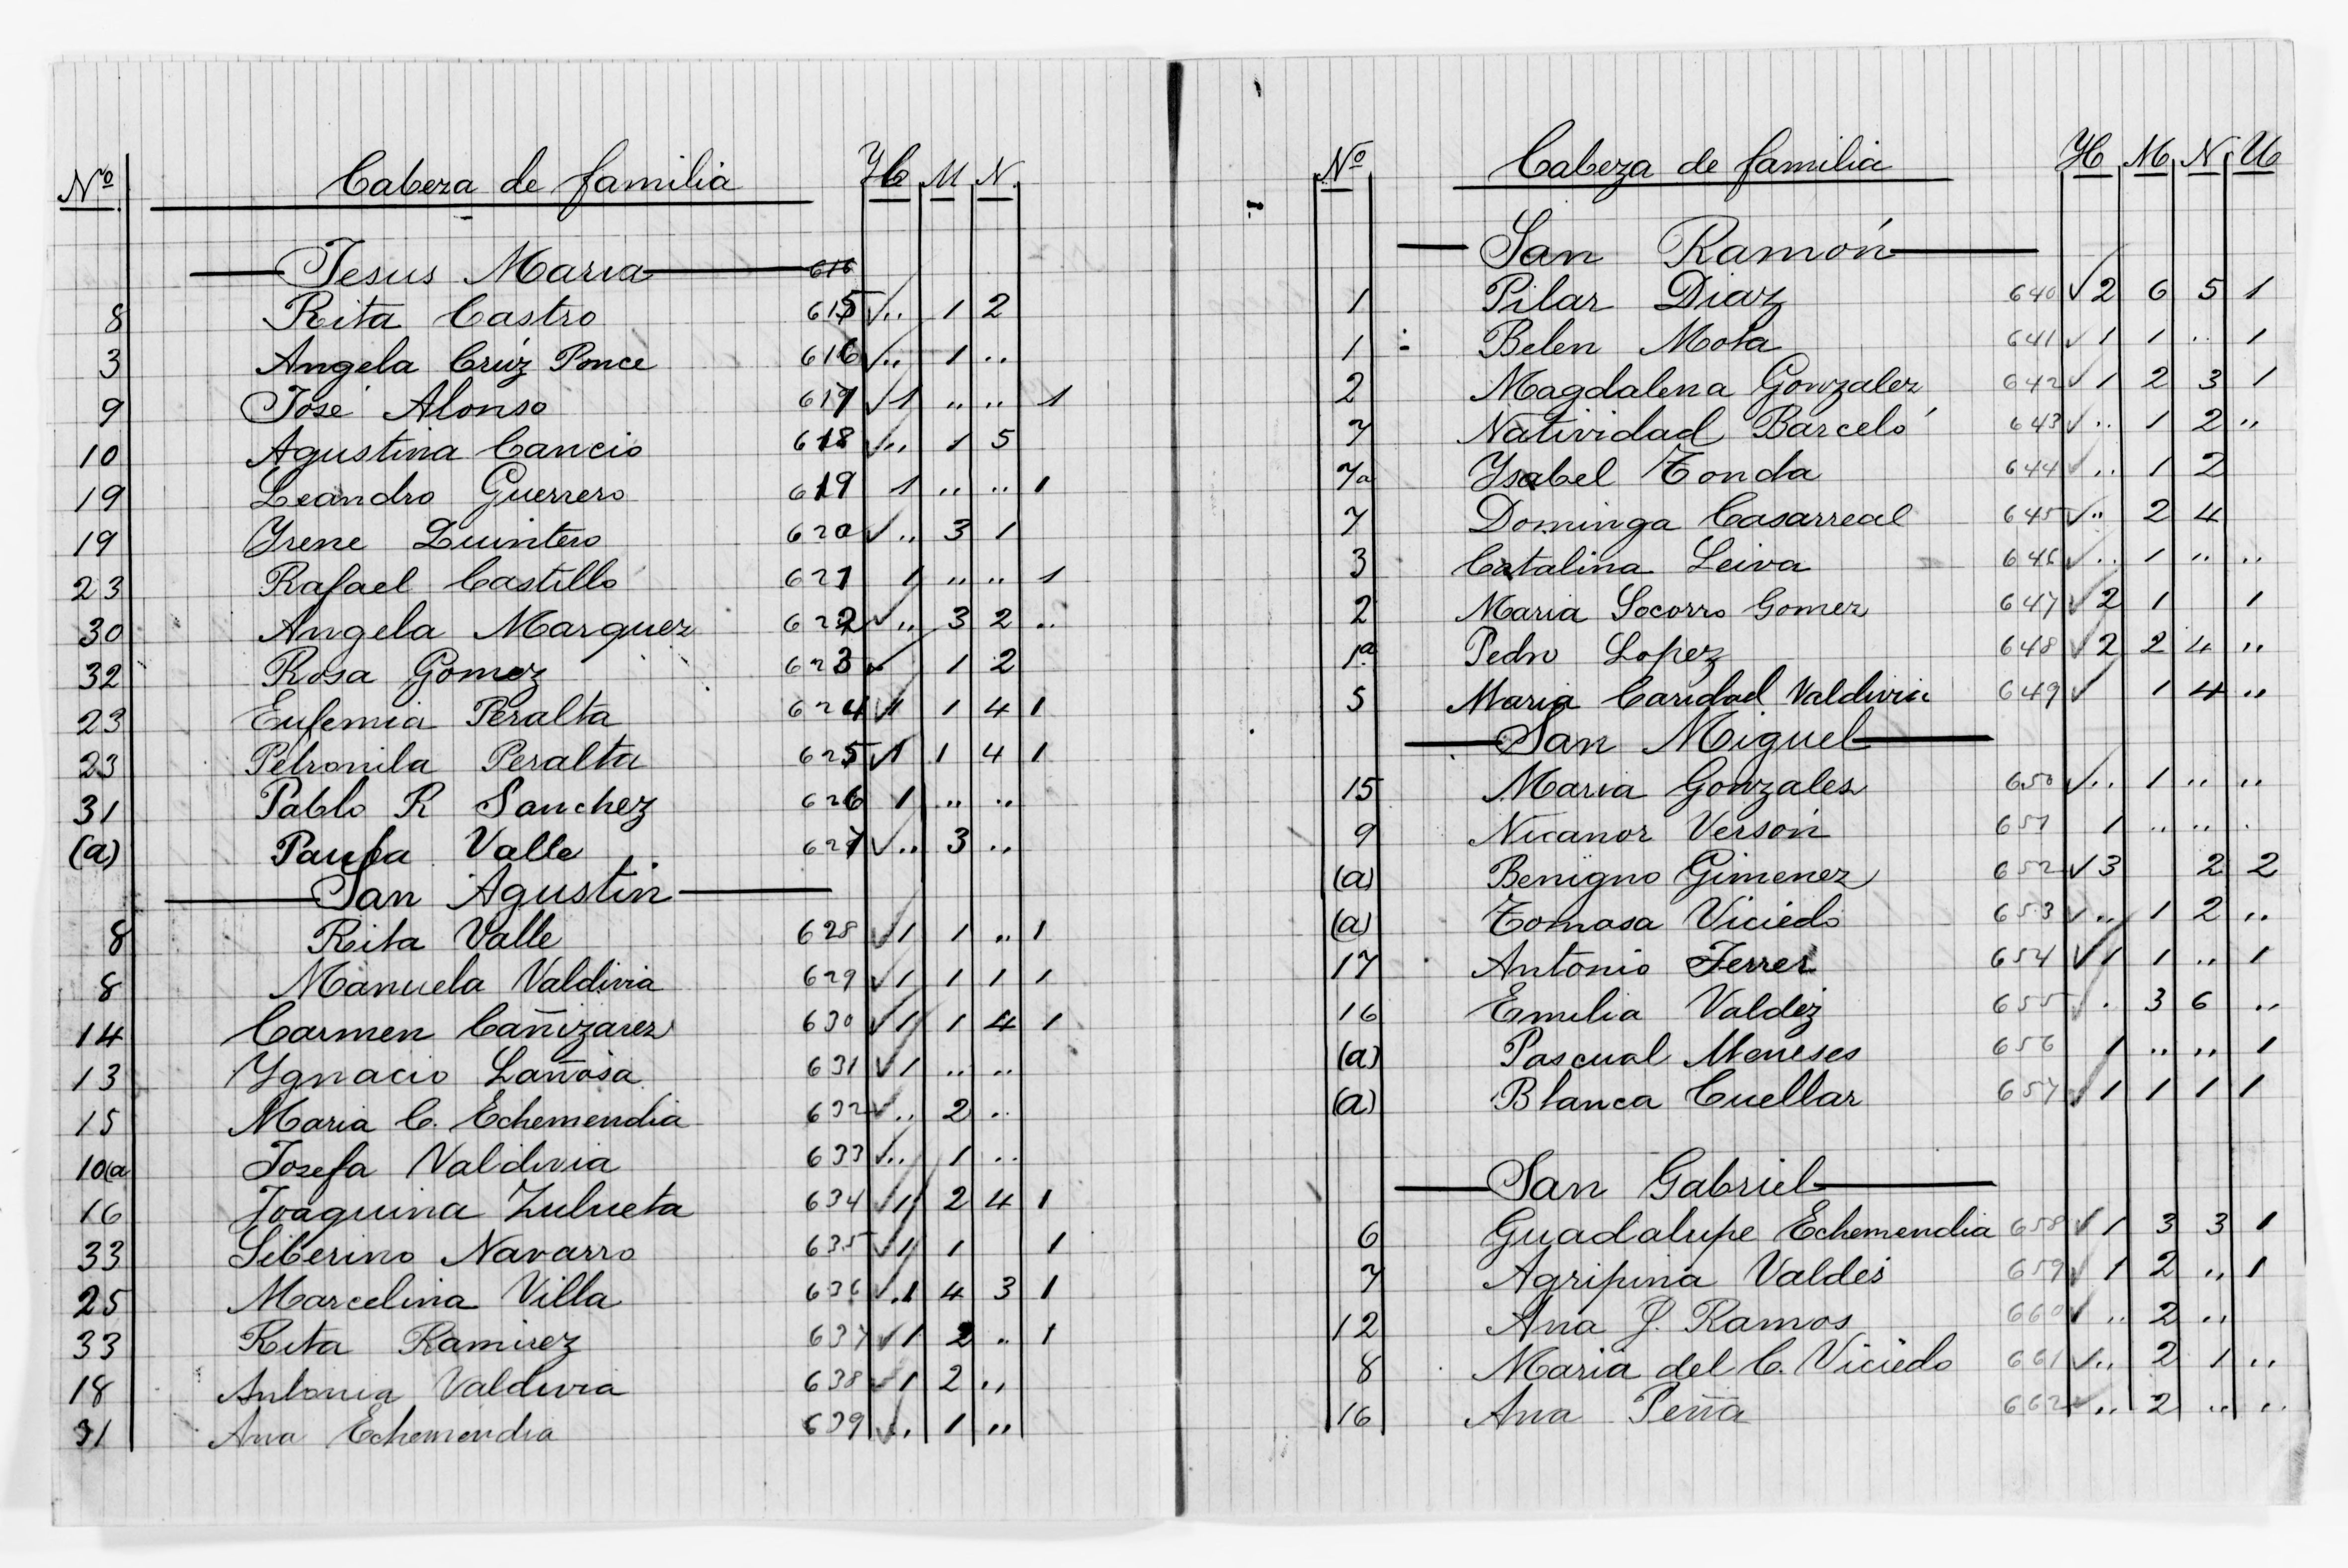 Nº Cabeza de familia H M N.
Jesus Maria 616
8 Rita Castro 615 ✓ .. 1 2
3 Angela Crúz Ponce 616 ✓ .. 1 ..
9 José Alonso 617 ✓ 1 .. .. 1
10 Agustina Cancio 618 ✓ .. 1 5
19 Leandro Guerrero 619 1 .. .. 1
19 Yrene Quintero 620 ✓ .. 3 1
23 Rafael Castillo 621 1 .. .. 1
30 Angela Marquez 622 ✓ .. 3 2 ..
32 Rosa Gomez 623 ✓ 1 2
23 Eufemia Peralta 624 ✓ 1 1 4 1
23 Petronila Peralta 625 ✓ 1 1 4 1
31 Pablo R Sanchez 626 1 .. ..
(a) Paula Valle 627 ✓ .. 3 ..
San Agustin
8 Rita Valle 628 ✓ 1 1 .. 1
8 Manuela Valdivia 629 ✓ 1 1 1 1
14 Carmen Cañizarez 630 ✓ 1 1 4 1
13 Ygnacio Lañosa 631 ✓ 1 .. ..
15 Maria C. Echemendia 632 ✓ .. 2 ..
10(a Josefa Valdivia 633 ✓ .. 1 ..
16 Joaquina Zulueta 634 ✓ 1 2 4 1
33 Siberino Navarro 635 ✓ 1 1 1
25 Marcelina Villa 636 ✓ .1 4 3 1
33 Rita Ramirez 637 ✓ 1 2 .. 1
18 Antonia Valdivia 638 ✓ 1 2 ..
31 Ana Echemendia 639 ✓ .. 1 ..
Nº Cabeza de familia H M N U
San Ramón
1 Pilar Diaz 640 ✓ 2 6 5 1
1 Belen Mota 641 ✓ 1 1 .. 1
2 Magdalena Gonzalez 642 ✓ 1 2 3 1
7 Natividad Barceló 643 ✓ .. 1 2 ..
7a Ysabel Tonda 644 ✓ .. 1 2
7 Dominga Casarreal 645 ✓ .. 2 4
3 Catalina Leiva 646 ✓ .. 1 .. ..
2 Maria Socorro Gomez 647 ✓ 2 1 1
1ª Pedro Lopez 648 ✓ 2 2 4 ..
5 Maria Caridad Valdivia 649 ✓ 1 4 ..
San Miguel
15 Maria Gonzales 650 ✓ .. 1 .. ..
9 Nicanor Versón 651 1 .. .. .
(a) Benigno Gimenez 652 ✓ 3 2 2
(a) Tomasa Viciedo 653 ✓ .. 1 2 ..
17 Antonio Ferrer 654 ✓ 1 1 .. 1
16 Emilia Valdéz 655 ✓ . 3 6 ..
(a) Pascual Meneses 656 1 .. .. 1
(a) Blanca Cuellar 657 ✓ 1 1 1 1
San Gabriel
6 Guadalupe Echemendia 658 ✓ 1 3 3 1
7 Agripina Valdés 659 ✓ 1 2 .. 1
12 Ana J. Ramos 660 ✓ .. 2 ..
8 Maria del C. Viciedo 661 ✓ .. 2 1 ..
16 Ana Peña 662 ✓ .. 2 .. ..